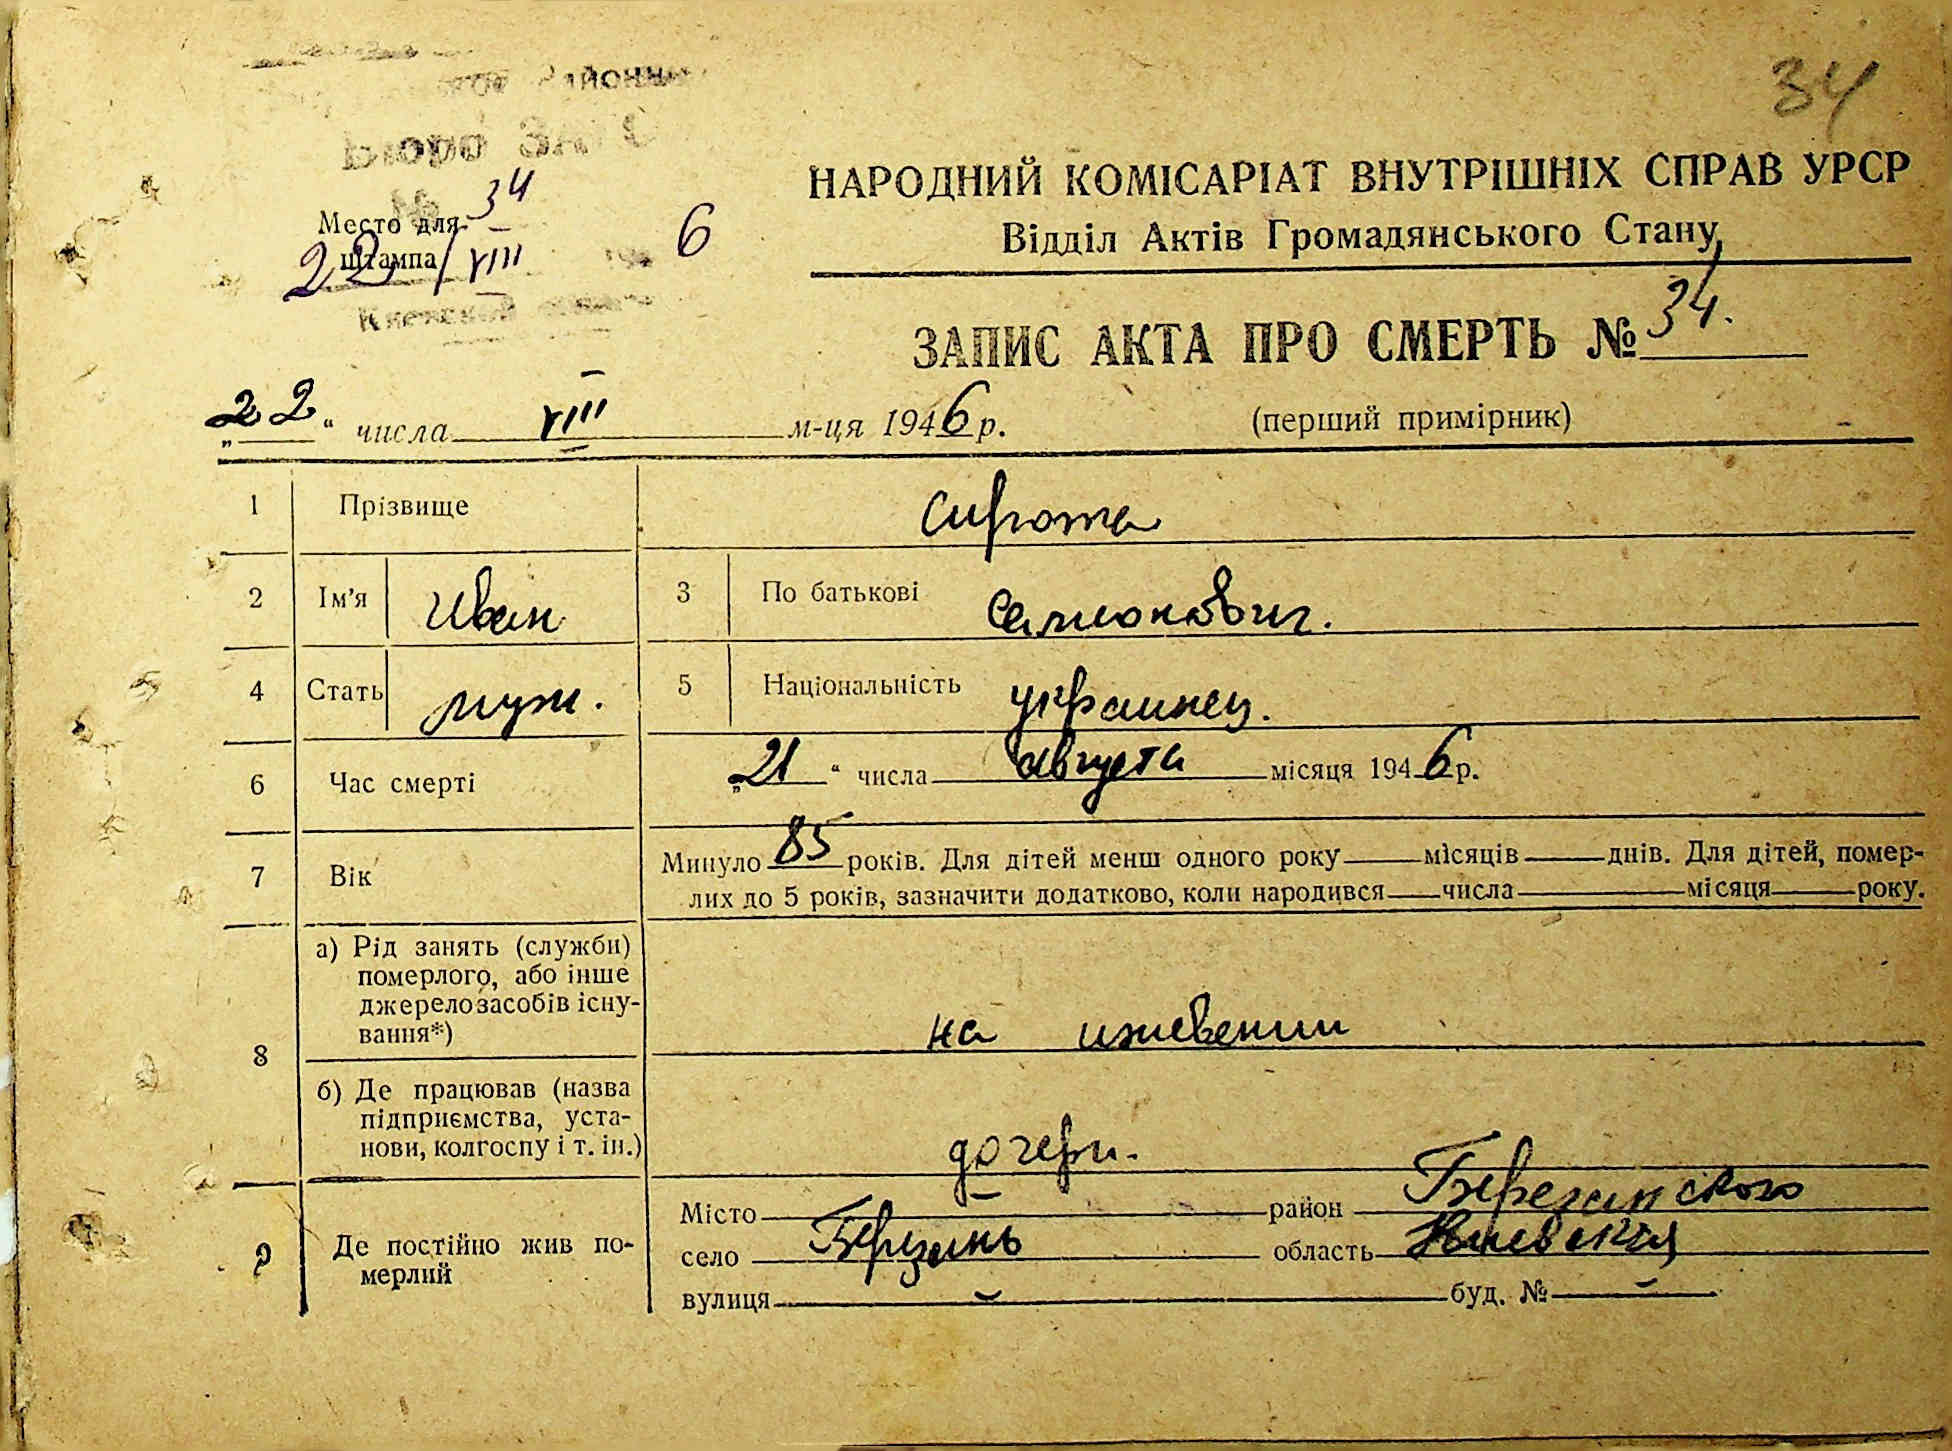 34
Бюро ЗАГС
34
Место для
штампа
22/VIII 6
Киевской
НАРОДНИЙ КОМІСАРІАТ ВНУТРІШНІХ СПРАВ УРСР
Відділ Актів Громадянського Стану
ЗАПИС АКТА ПРО СМЕРТЬ № 34.
„22“ числа VIII м-ця 1946 р. (перший примірник)
1 Прізвище Сирота
2 Ім'я Иван 3 По батькові Самсонович.
4 Стать муж. 5 Національність украинец.
6 Час смерті „21“ числа августа місяця 1946 р.
7 Вік Минуло 85 років. Для дітей менш одного року — місяців — днів. Для дітей, помер-
лих до 5 років, зазначити додатково, коли народився — числа — місяця — року.
8 а) Рід занять (служби)
померлого, або інше
джерело засобів існу-
вання*)
на иждвении
б) Де працював (назва
підприємства, уста-
нови, колгоспу і т. ін.)
дочери.
9 Де постійно жив по-
мерлий
Місто — район Березанского
село Березань область Киевская
вулиця — буд. № —